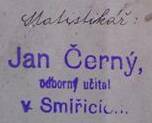 Statistikář:
Jan Černý,
odborný učitel
v Smiřicích.